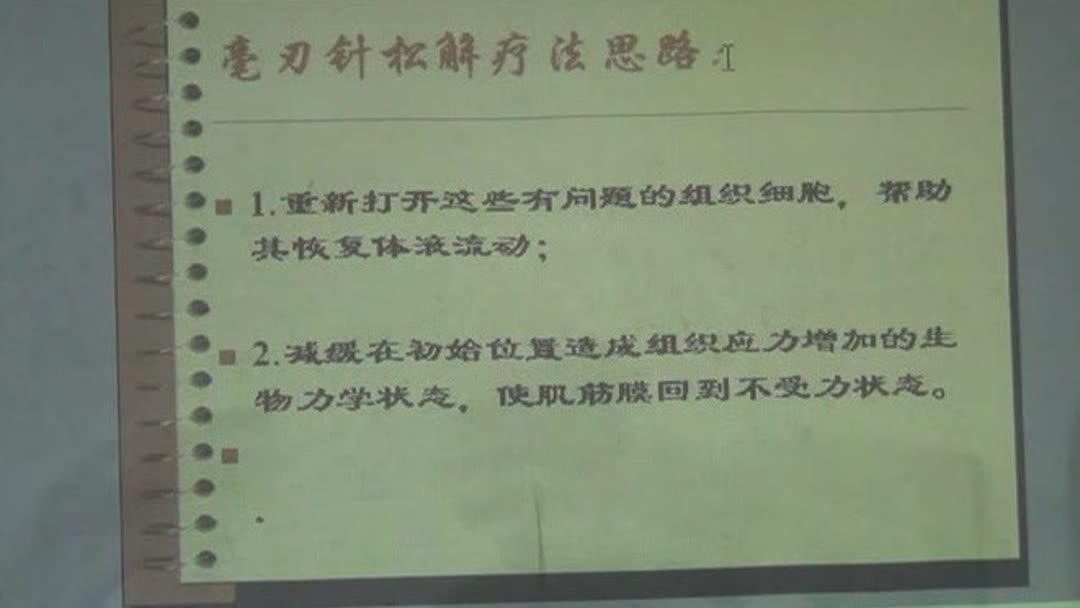 毫刃针松解疗法思路
1.重新打开这些有问题的组织细胞，帮助
其恢复体液流动；
2.减缓在初始位置造成组织应力增加的生
物力学状态，使肌筋膜回到不受力状态。